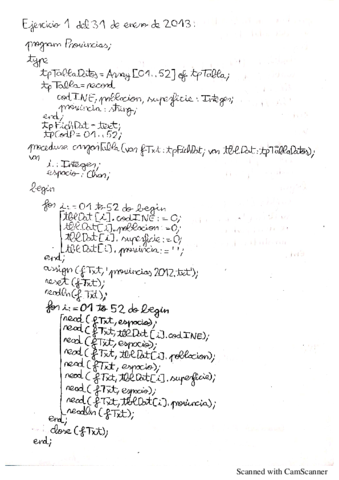 Ejercicio 1 del 31 de enero de 2013:
program Provincias;
type
tpTablaDatos = Array [01..52] of tpTabla;
tpTabla = record
codINE, poblacion, superficie : Integer;
provincia : string;
end;
tpFichDat = text;
tpCodP = 01..52;
procedure cargarTabla (var fTxt : tpFichDat; var tblDat : tpTablaDatos);
var
i : Integer;
espacio : Char;
begin
for i := 01 to 52 do begin
tblDat [i]. codINE := 0;
tblDat [i]. poblacion := 0;
tblDat [i]. superficie := 0;
tblDat [i]. provincia := '';
end;
assign (fTxt, 'provincias2012.txt');
reset (fTxt);
readln (fTxt);
for i := 01 to 52 do begin
read (fTxt, espacio);
read (fTxt, tblDat [i]. codINE);
read (fTxt, espacio);
read (fTxt, tblDat [i]. poblacion);
read (fTxt, espacio);
read (fTxt, tblDat [i]. superficie);
read (fTxt, espacio);
read (fTxt, tblDat [i]. provincia);
readln (fTxt);
end;
close (fTxt);
end;
Scanned with CamScanner